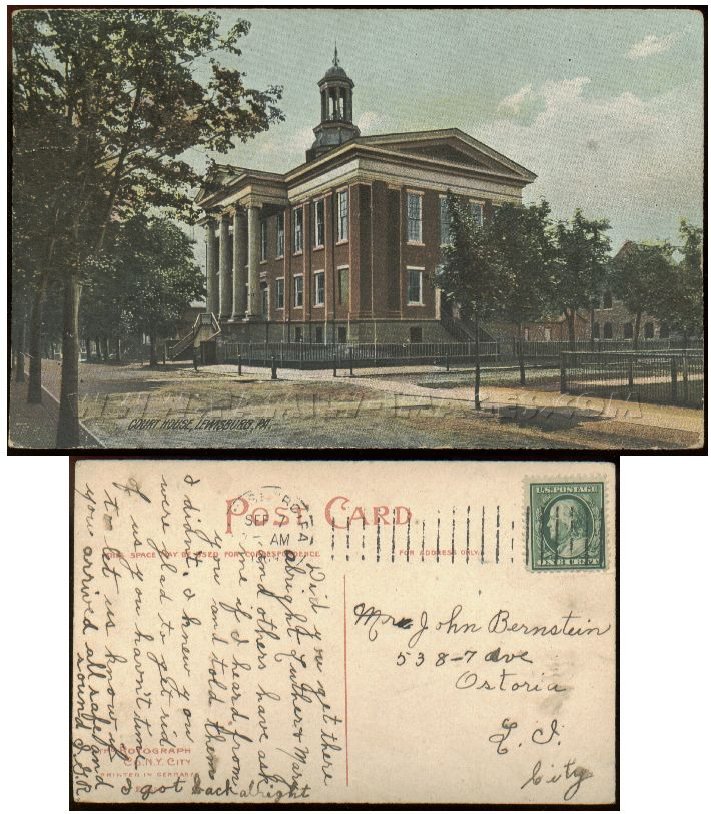 COURT HOUSE, LEWISBURG, PA.
POST CARD
SEP 7
- AM
THIS SPACE MAY BE USED FOR CORRESPONDENCE
FOR ADDRESS ONLY
U.S. POSTAGE
ONE CENT
Did you get there
alright Luther & Mary
and others have ask
me if I heard from
you and told them
I didn't. I knew you
were glad to get rid
of us you haven't time
to let us know if
you arrived all safe and
sound
I got back alright
Mrs John Bernstein
538-7 ave
Ostoria
L. I.
City
PHOTOGRAPH
CO. N.Y. CITY
PRINTED IN GERMANY